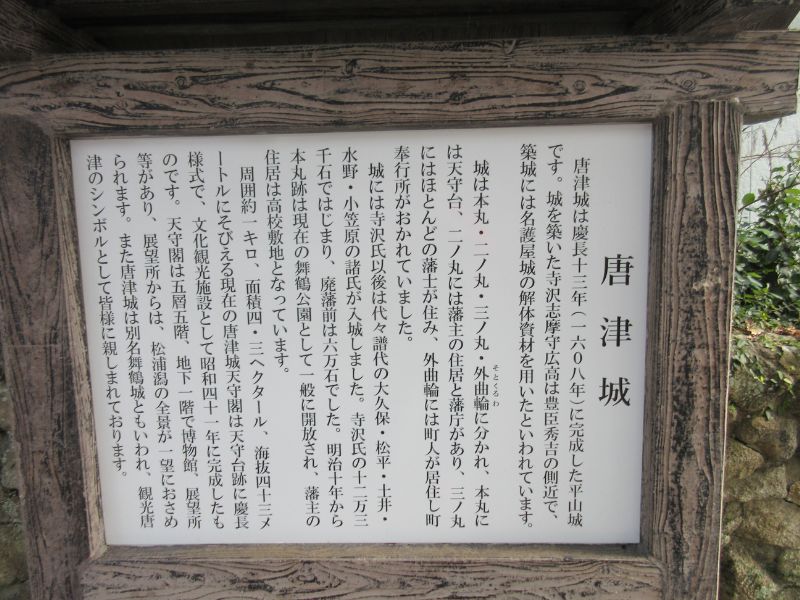 唐津城
唐津城は慶長十三年(一六〇八年)に完成した平山城
です。城を築いた寺沢志摩守広高は豊臣秀吉の側近で、
築城には名護屋城の解体資材を用いたといわれています。
城は本丸・二ノ丸・三ノ丸・外曲輪に分かれ、本丸に
そとくるわ
は天守台、二ノ丸には藩主の住居と藩庁があり、三ノ丸
にはほとんどの藩士が住み、外曲輪には町人が居住し町
奉行所がおかれていました。
城には寺沢氏以後は代々譜代の大久保・松平・土井・
水野・小笠原の諸氏が入城しました。寺沢氏の十二万三
千石ではじまり、廃藩前は六万石でした。明治十年から
本丸跡は現在の舞鶴公園として一般に開放され、藩主の
住居は高校敷地となっています。
周囲約一キロ、面積四・三ヘクタール、海抜四十三メ
ートルにそびえる現在の唐津城天守閣は天守台跡に慶長
様式で、文化観光施設として昭和四十一年に完成したも
のです。天守閣は五層五階、地下一階で博物館、展望所
等があり、展望所からは、松浦潟の全景が一望におさめ
られます。また唐津城は別名舞鶴城ともいわれ、観光唐
津のシンボルとして皆様に親しまれております。